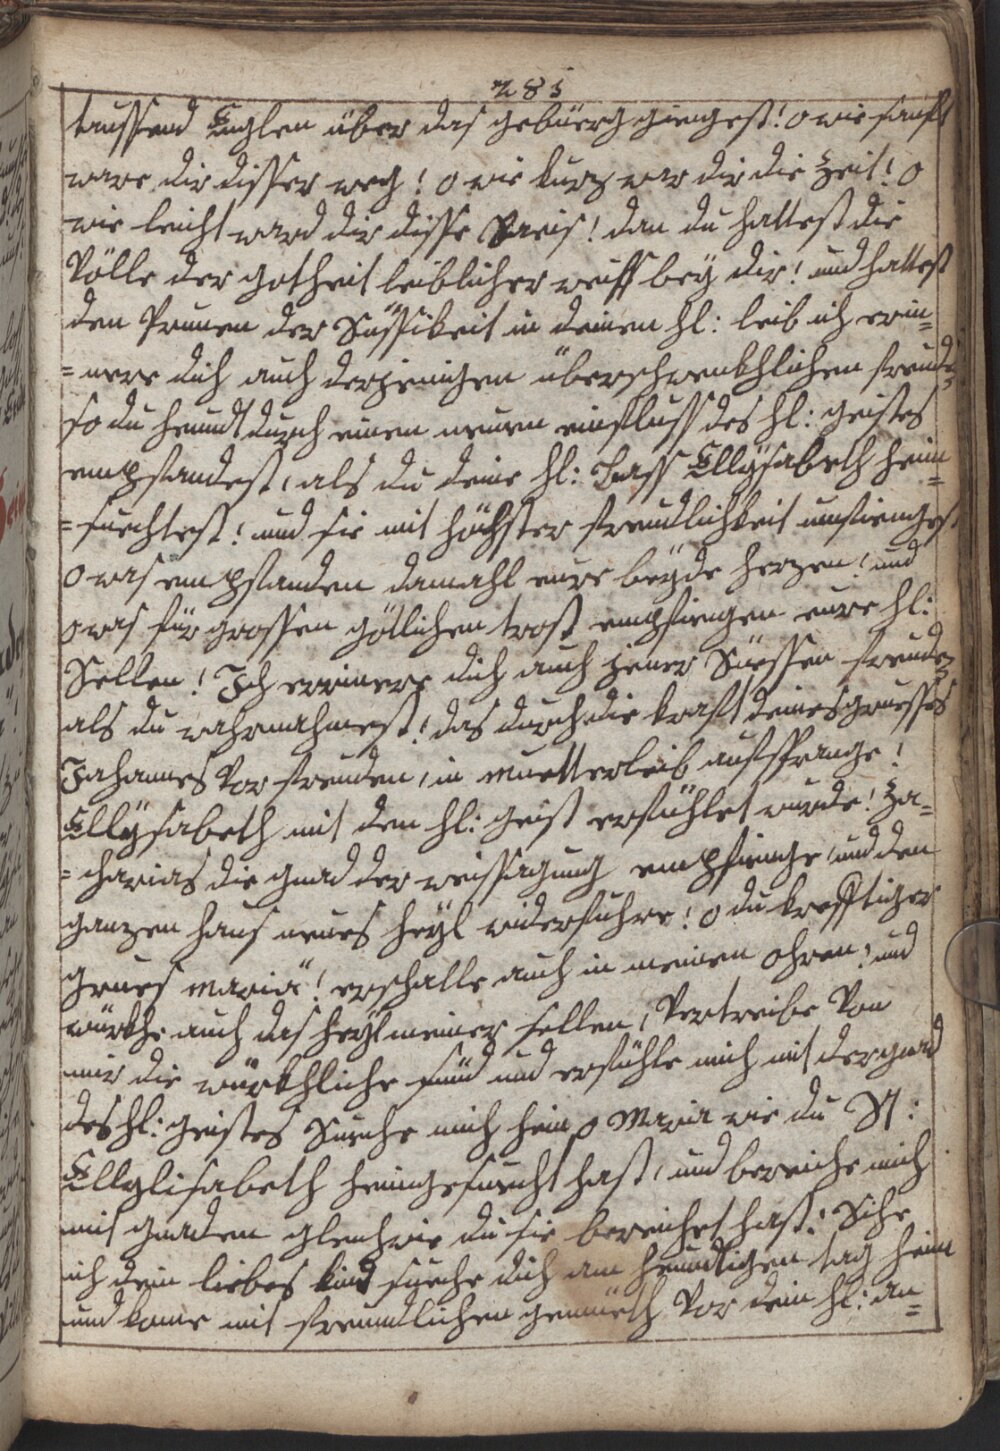 285
taussend Englen über das gebüerg giengest! o wie sanfft
ware dir disser weg! o wie kurz war dir die Zeit! o
wie leicht ward dir disse Rreis! dan du hattest die
Völle der gotheit leiblicher weiss beÿ dir! und hattest
den Prunen der Süssikeit in deinen hl: leib ich erin=
=nere dich auch derjenigen überschwenkhlichen freuden
so du heundt durch einen neuen einfluss des hl: geistes
empfandest, als du deine hl: Bass Ellÿsabeth heim=
=suechtest! und sie mit höchster freundlichkeit umfiengest
o was empfanden damahl eure beÿde herzen! und
o was für grossen götlichen trost empfiengen eure hl:
Sellen! Ich erinere dich auch jener Süessen freuden
als du wahrnahmest! das durch die krafft deines gruesses
Johannes vor freuden, in muetterleib aufsprange!
Ellÿsabeth mit den hl: geist erfühlet wurde! Za=
=charias die gnad der weissagung empfienge, und den
ganzen haus neues heÿl widerfuhre! o du krefftiger
grues maria! erschalle auch in meinen ohren, und
würkhe auch das heÿl meiner sellen, Vertreibe Von
mir die würkhliche sünd und erfühle mich mit der gnad
des hl: geistes Sueche mich heim o Maria wie du St:
Ellÿlisabeth heimgesuecht hast, und bereiche mich
mit gnaden gleichwie du sie bereichet hast! Sihe
ich dein liebes kind sueche dich am heundtigen tag heim
und kome mit freundlichen gemüeth Vor dein hl: an=